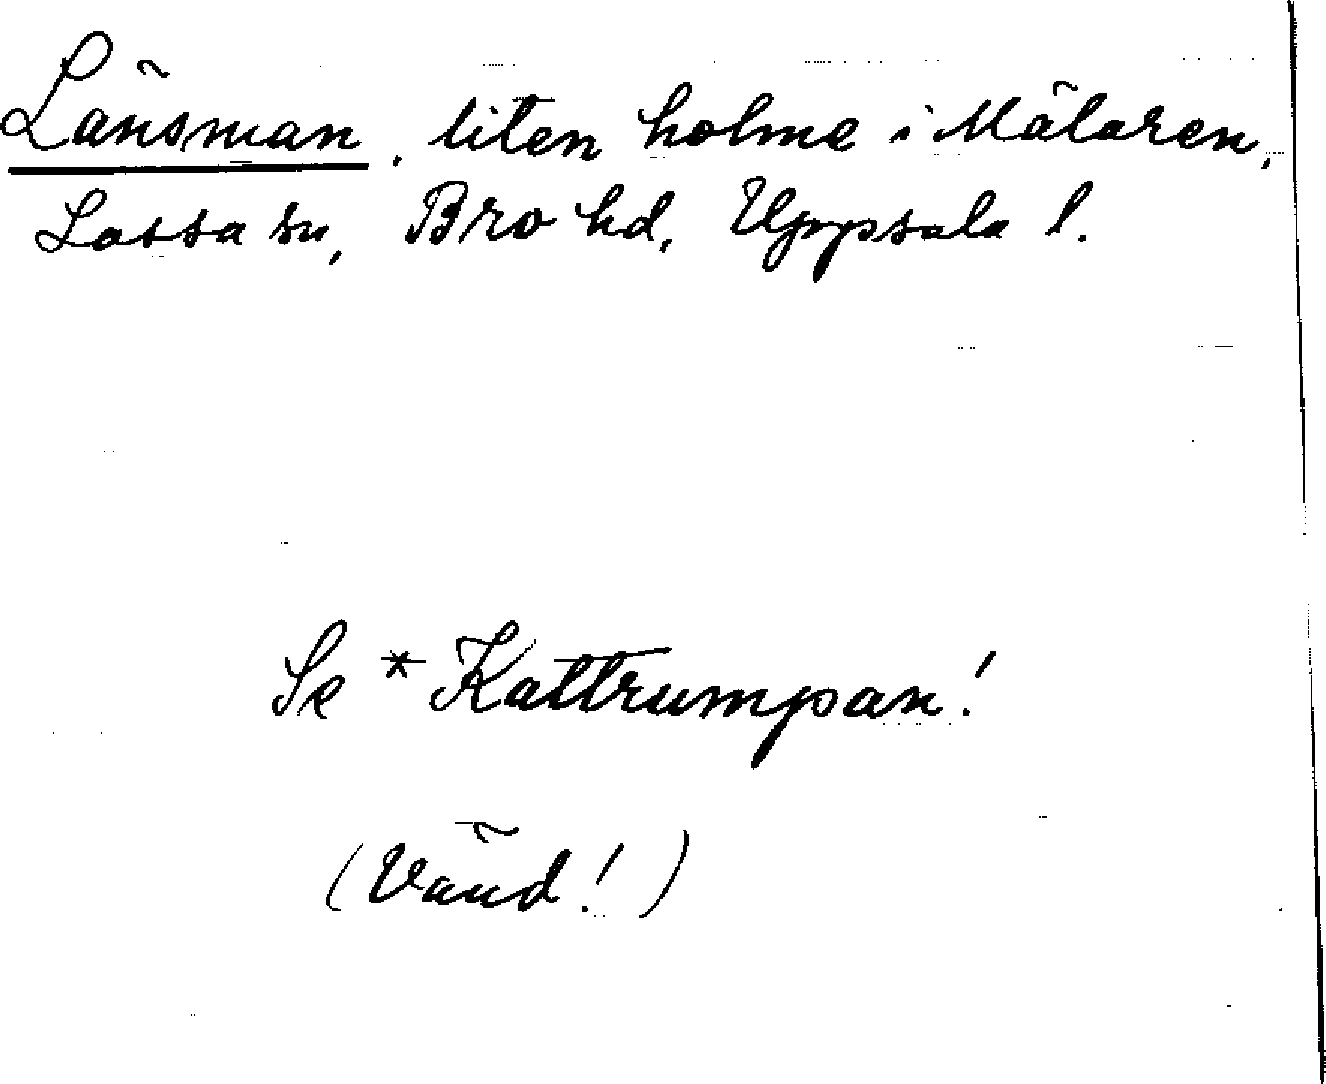 Länsman, liten holme i Mälaren,
Lossa sn, Bro hd, Uppsala l.
Se *Kattrumpan!
(Vänd!)